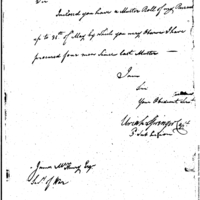 Sir
Inclosed you have a Muster Roll of my
up to 31st of May by which you may Observe I have
procured four men Since last Muster —
I am
Sir
Your Obedient Servt
Uriah Springer Capt
3d Sub Legion
James McHenry Esqr
Secy of War